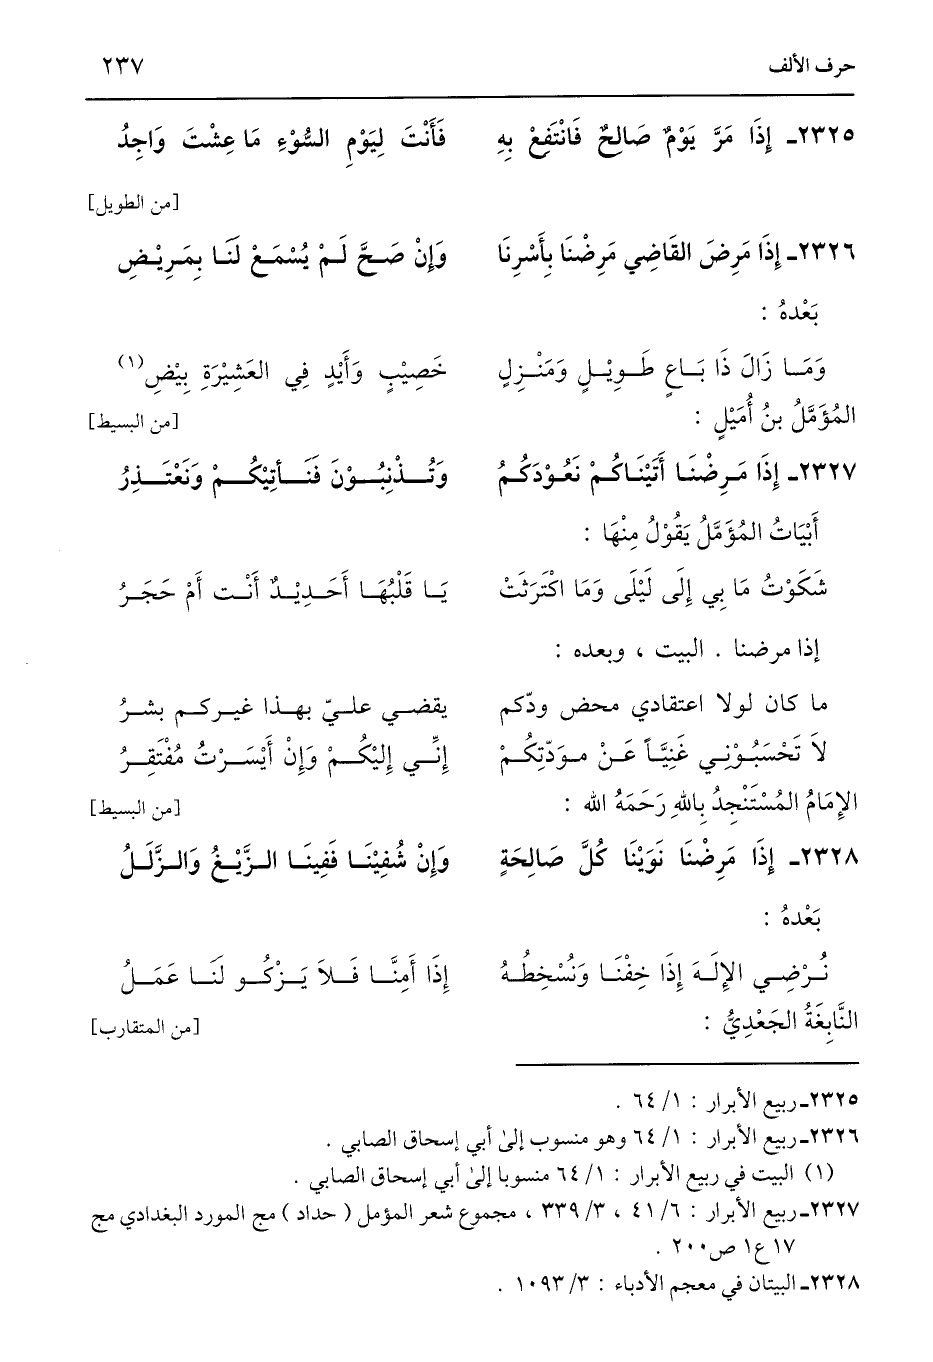 حرف الألف ٢٣٧
٢٣٢٥ـ إِذَا مَرَّ يَوْمٌ صَالِحٌ فَانْتَفِعْ بِهِ فَأَنْتَ لِيَوْمِ السُّوْءِ مَا عِشْتَ وَاجِدُ
[من الطويل]
٢٣٢٦ـ إِذَا مَرِضَ القَاضِي مَرِضْنَا بِأَسْرِنَا وَإِنْ صَحَّ لَمْ يُسْمَعْ لَنَا بِمَرِيْضِ
بَعْدهُ :
وَمَا زَالَ ذَا بَاعٍ طَوِيْلٍ وَمَنْزِلٍ خَصِيْبٍ وَأَيْدٍ فِي العَشِيْرَةِ بِيْضِ(١)
المُؤَمَّلُ بنُ أُمَيْلٍ : [من البسيط]
٢٣٢٧ـ إِذَا مَرِضْنَا أَتَيْنَاكُمْ نَعُوْدَكُمُ وَتُذْنِبُوْنَ فَنَأتِيْكُمْ وَنَعْتَذِرُ
أَبْيَاتُ المُؤَمَّلُ يَقُوْلُ مِنْهَا :
شَكَوْتُ مَا بِي إِلَى لَيْلَى وَمَا اكْتَرَثَتْ يَا قَلْبُهَا أَحَدِيْدٌ أَنْت أَمْ حَجَرُ
إذا مرضنا . البيت ، وبعده :
ما كان لولا اعتقادي محض ودّكم يقضي عليّ بهذا غيركم بشرُ
لاَ تَحْسَبُوْنِي غَنِيَّاً عَنْ موَدّتِكُمْ إِنِّي إِلَيْكُمْ وَإِنْ أَيْسَرْتُ مُفْتَقِرُ
الإمَامُ المُسْتَنْجِدُ بِاللهِ رَحَمَهُ الله : [من البسيط]
٢٣٢٨ـ إِذَا مَرِضْنَا نَوَيْنَا كُلَّ صَالِحَةٍ وَإِنْ شُفِيْنَا فَفِينَا الزَّيْغُ وَالزَّلَلُ
بَعْدهُ :
نُرْضِي الإِلَهَ إِذَا خِفْنَا وَنُسْخِطُهُ إِذَا أَمِنَّا فَلاَ يَزْكُو لَنَا عَمَلُ
النَّابِغَةُ الجَعْدِيُّ : [من المتقارب]
٢٣٢٥ـ ربيع الأبرار : ١/ ٦٤ .
٢٣٢٦ـ ربيع الأبرار : ١/ ٦٤ وهو منسوب إلىٰ أبي إسحاق الصابي .
(١) البيت في ربيع الأبرار : ١/ ٦٤ منسوبا إلىٰ أبي إسحاق الصابي .
٢٣٢٧ـ ربيع الأبرار : ٦/ ٤١ ، ٣/ ٣٣٩ ، مجموع شعر المؤمل ( حداد ) مج المورد البغدادي مج
١٧ ع١ ص٢٠٠ .
٢٣٢٨ـ البيتان في معجم الأدباء : ٣/ ١٠٩٣ .